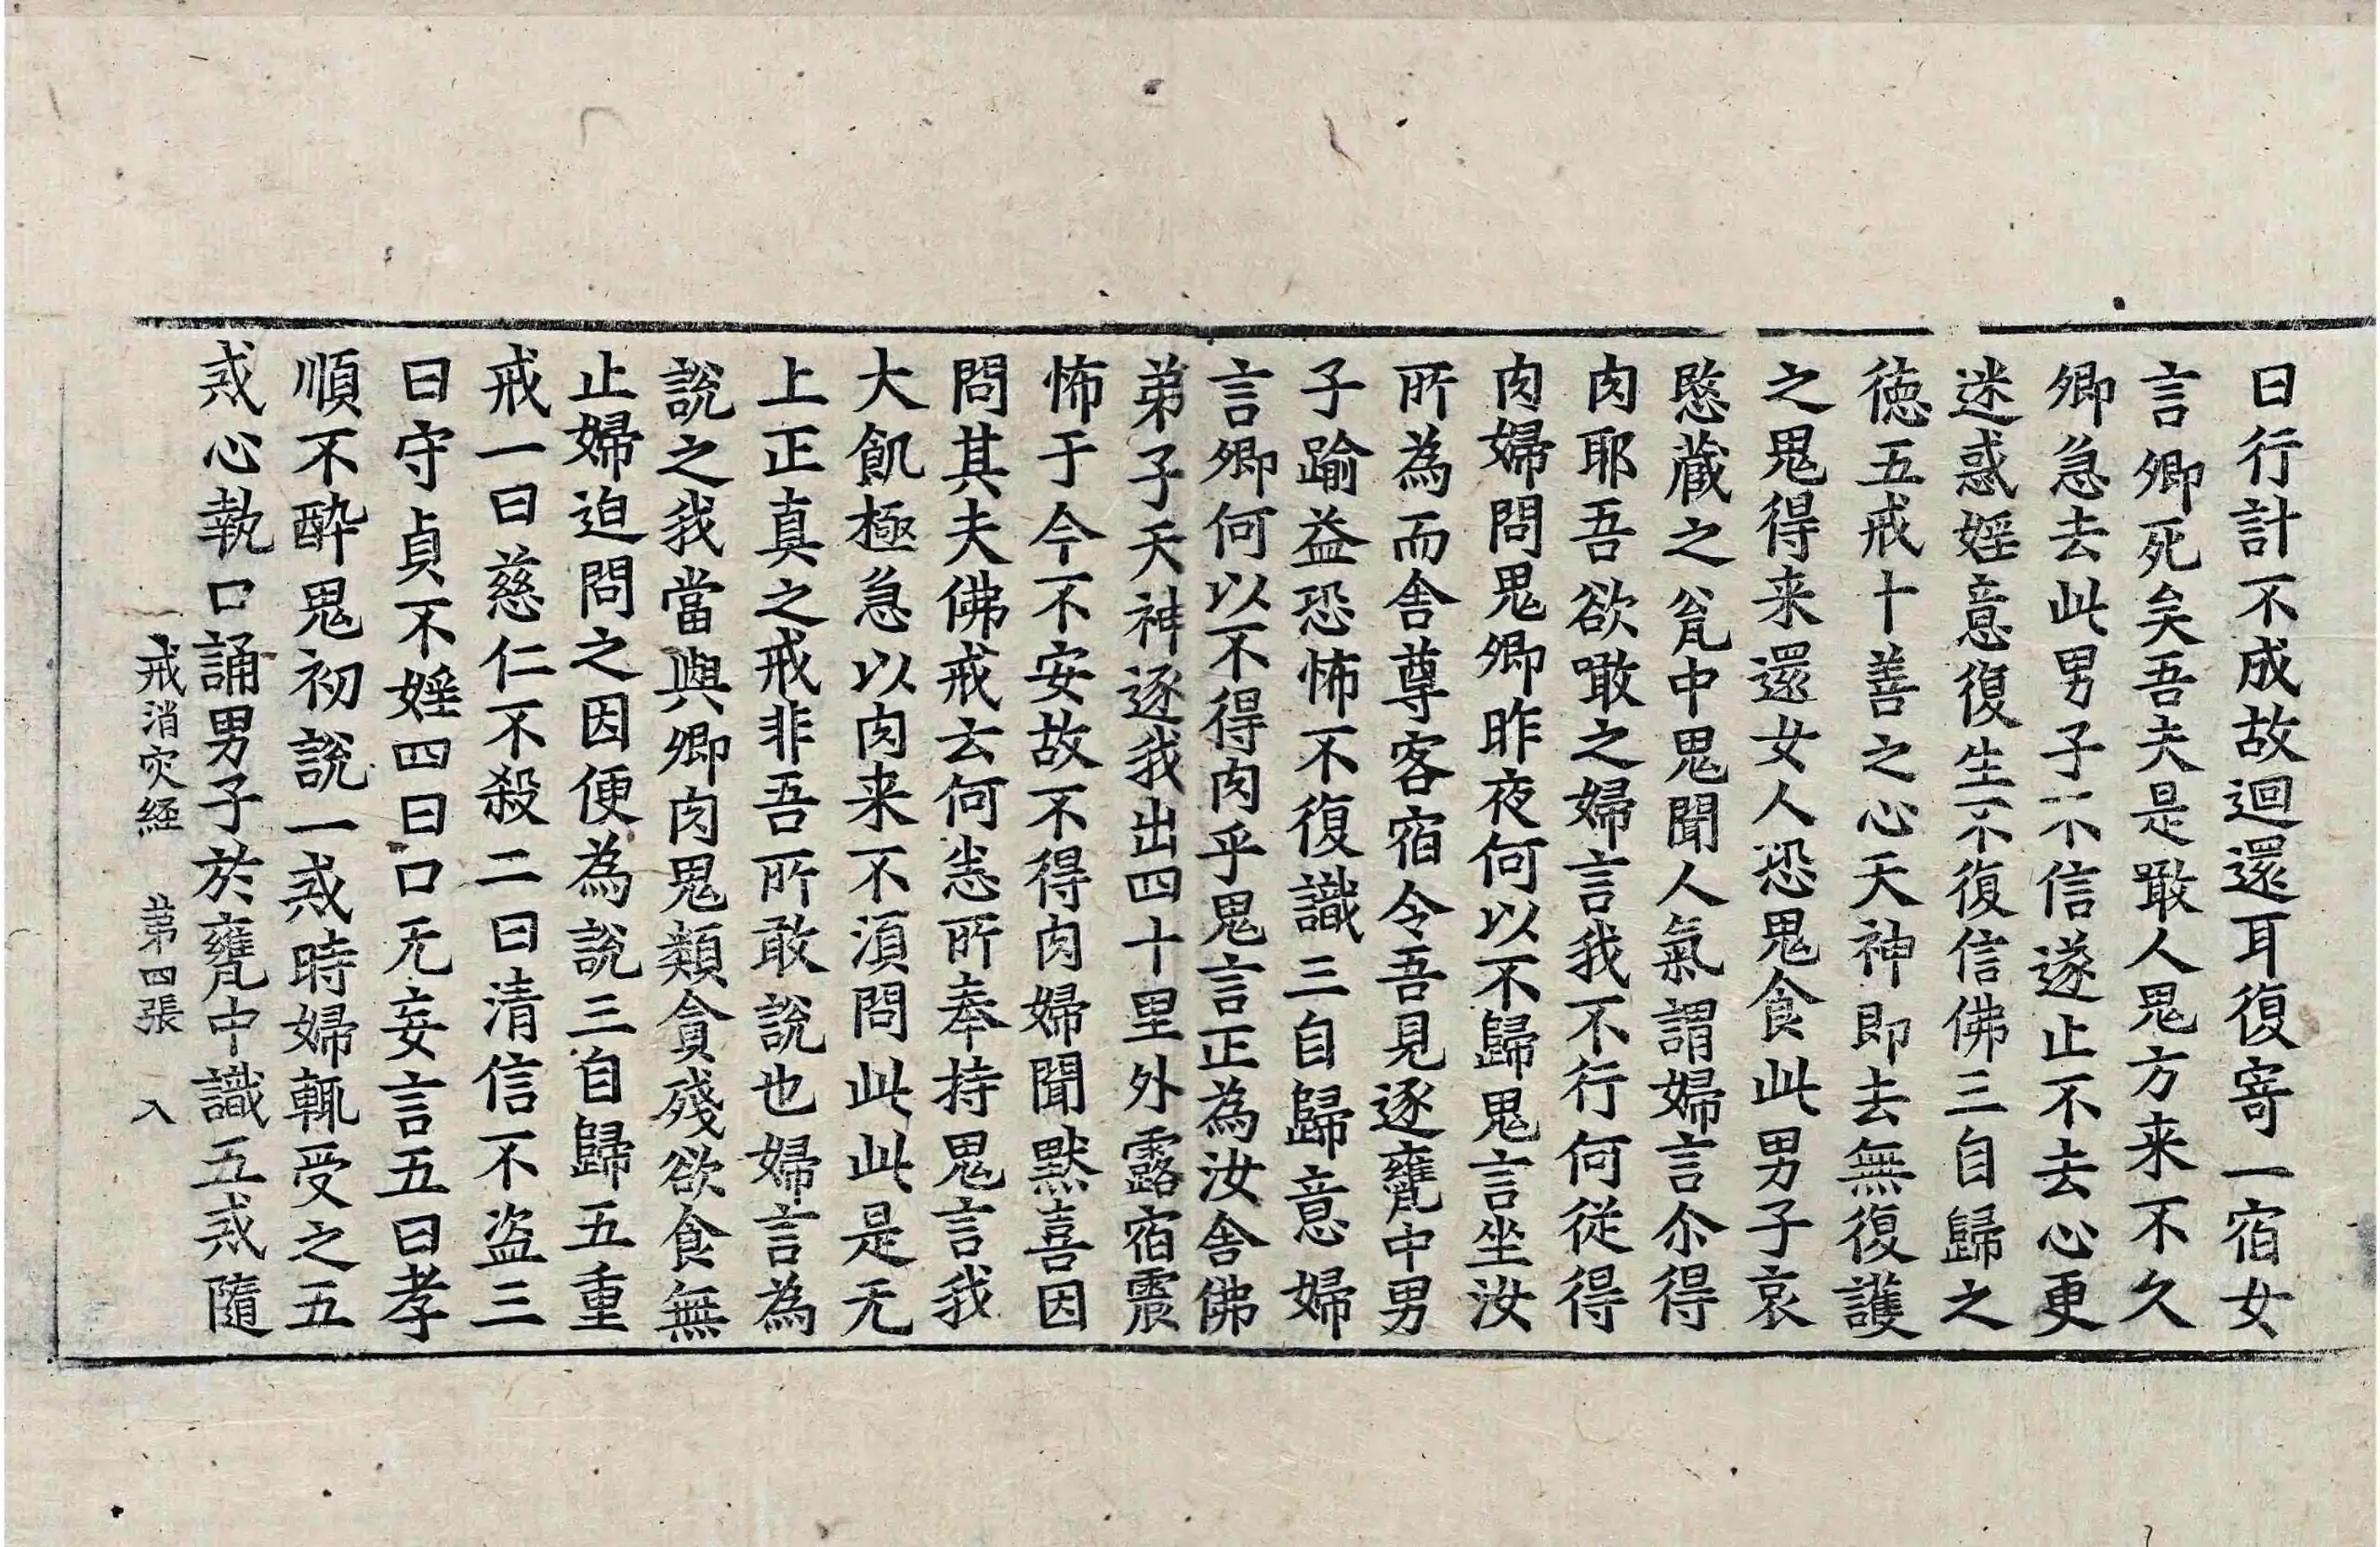 曰行計不成故迴還耳復寄一宿女
言卿死矣吾夫是噉人鬼方来不久
卿急去此男子不信遂止不去心更
迷惑婬意復生不復信佛三自歸之
徳五戒十善之心天神即去無復護
之鬼得来還女人恐鬼食此男子哀
愍蔵之瓮中鬼聞人氣謂婦言尒得
肉耶吾欲噉之婦言我不行何従得
肉婦問鬼卿昨夜何以不歸鬼言坐汝
所為而舎尊客宿令吾見逐甕中男
子踰益恐怖不復識三自歸意婦
言卿何以不得肉乎鬼言正為汝舎佛
弟子天神逐我出四十里外露宿震
怖于今不安故不得肉婦聞黙喜因
問其夫佛戒云何恙所奉持鬼言我
大飢極急以肉来不湏問此此是无
上正真之戒非吾所敢說也婦言為
說之我當與卿肉鬼類貪殘欲食無
止婦迫問之因便為說三自歸五重
戒一曰慈仁不殺二曰清信不盗三
曰守貞不婬四曰口无妄言五曰孝
順不酔鬼初說一戒時婦輒受之五
戒心執口誦男子於甕中識五戒隨
戒消灾経 苐四張 入